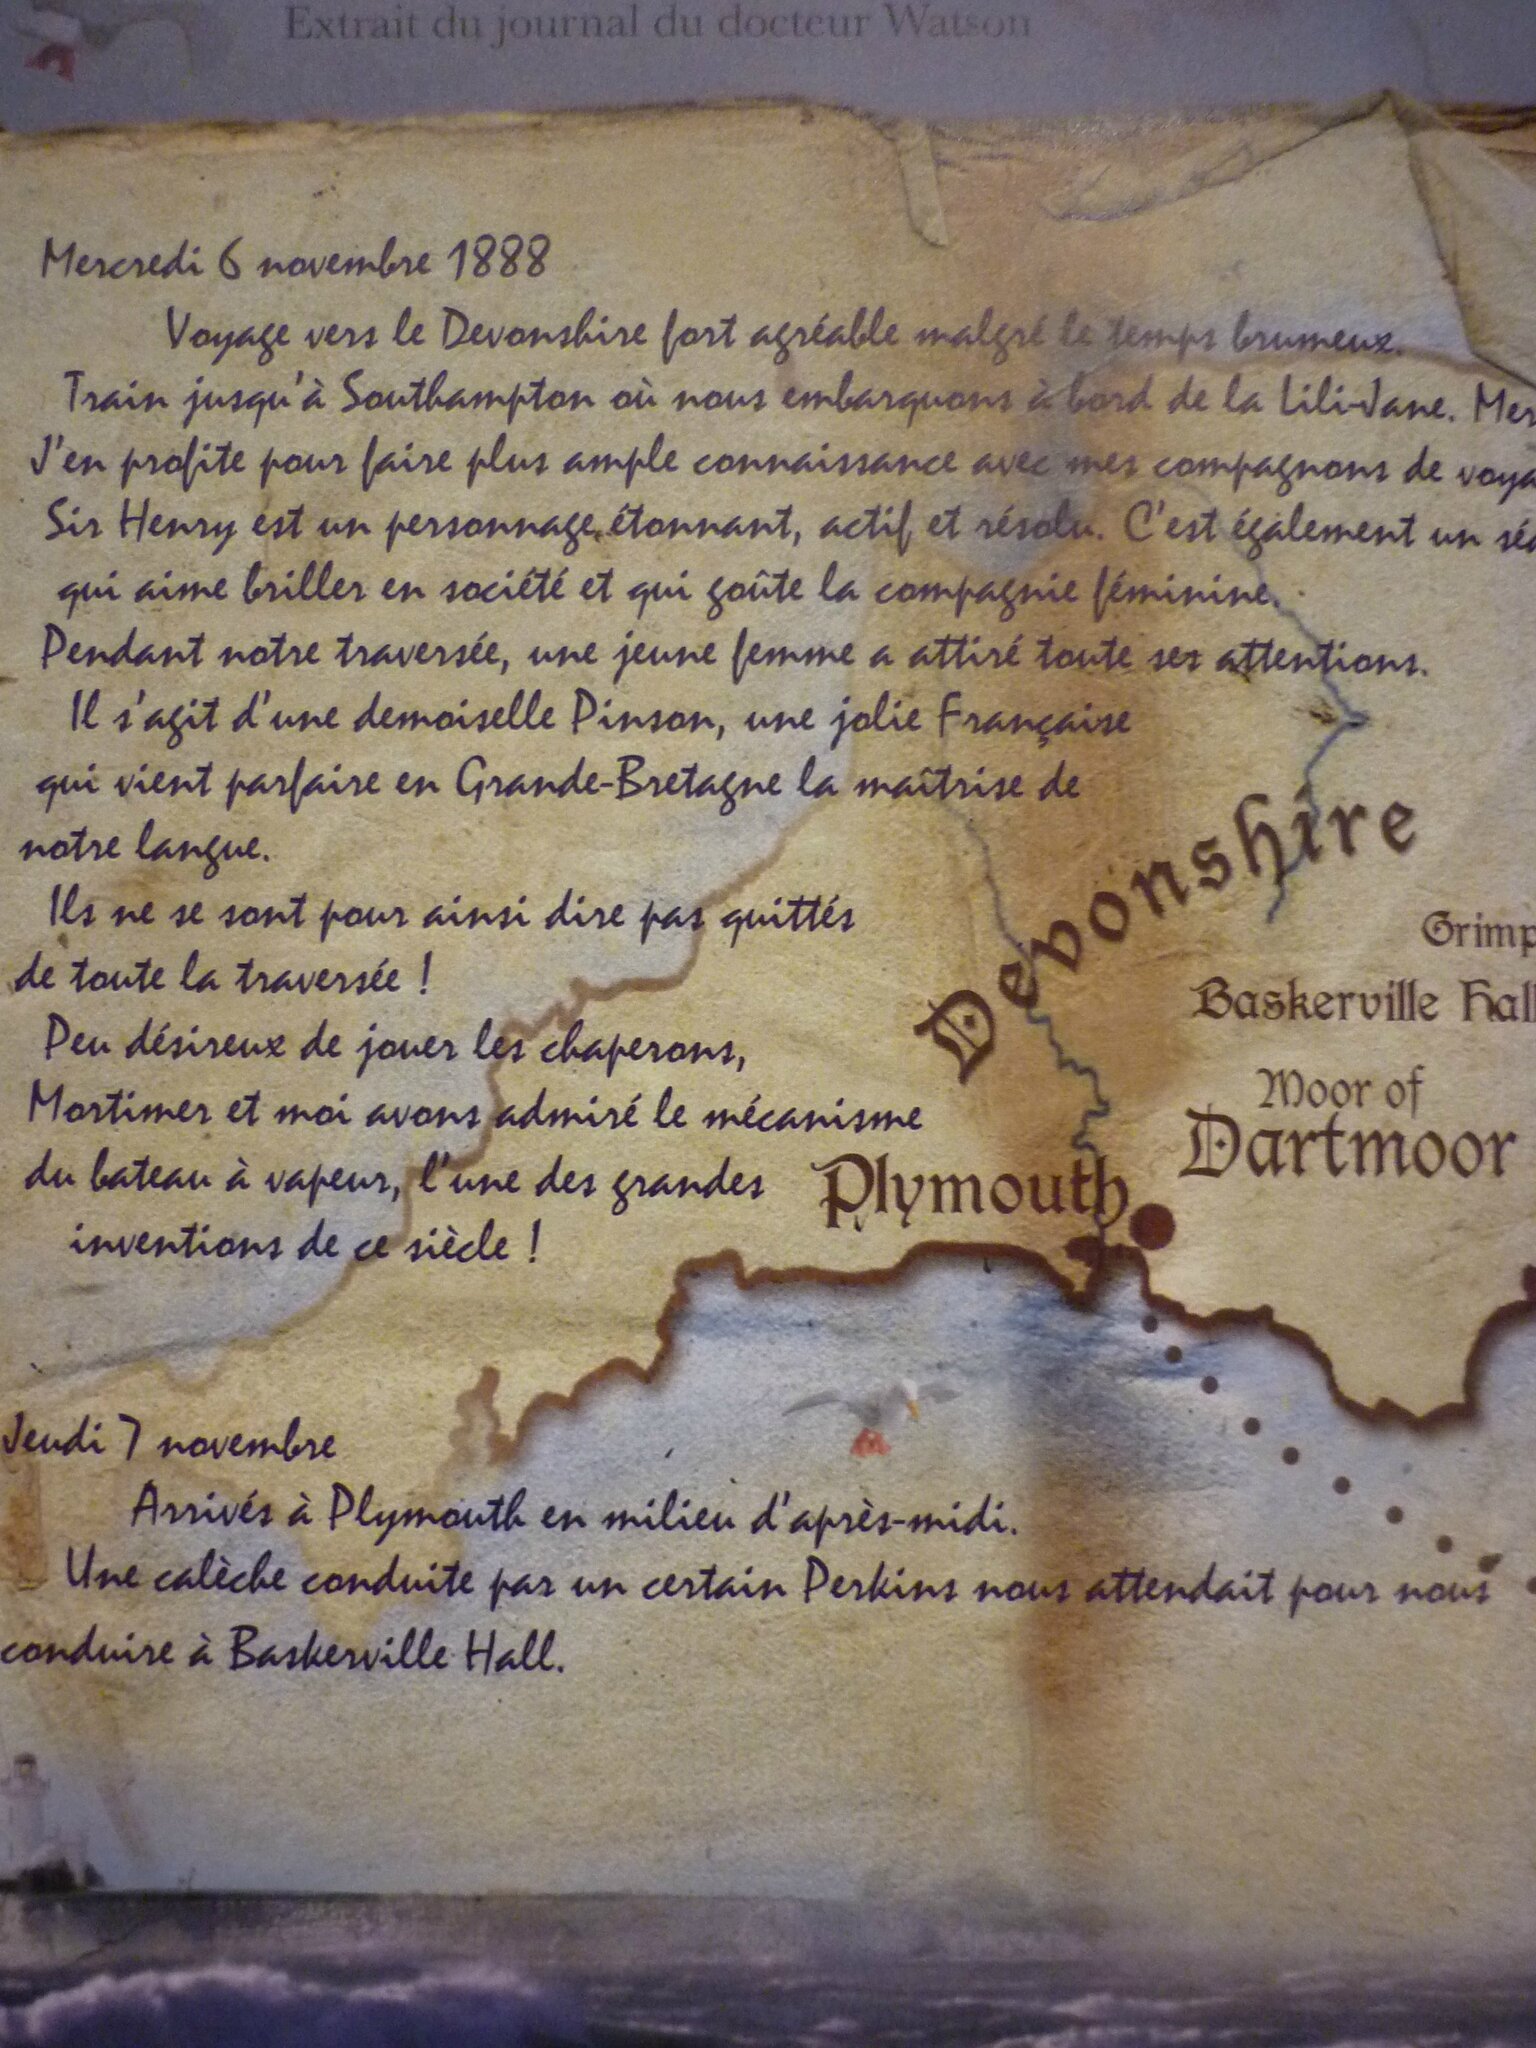 Extrait du journal du docteur Watson
Mercredi 6 novembre 1888
Voyage vers le Devonshire fort agréable malgré le temps brumeux.
Train jusqu'à Southampton où nous embarquons à bord de la Lili-Jane.
J'en profite pour faire plus ample connaissance avec mes compagnons de
Sir Henry est un personnage étonnant, actif et résolu. C'est également un
qui aime briller en société et qui goûte la compagnie féminine.
Pendant notre traversée, une jeune femme a attiré toute ses attentions.
Il s'agit d'une demoiselle Pinson, une jolie Française
qui vient parfaire en Grande-Bretagne la maîtrise de
notre langue.
Ils ne se sont pour ainsi dire pas quittés
de toute la traversée !
Peu désireux de jouer les chaperons,
Mortimer et moi avons admiré le mécanisme
du bateau à vapeur, l'une des grandes
inventions de ce siècle !
Devonshire
Baskerville Hall
Moor of
Dartmoor
Plymouth
Jeudi 7 novembre
Arrivés à Plymouth en milieu d'après-midi.
Une calèche conduite par un certain Perkins nous attendait pour nous
conduire à Baskerville Hall.